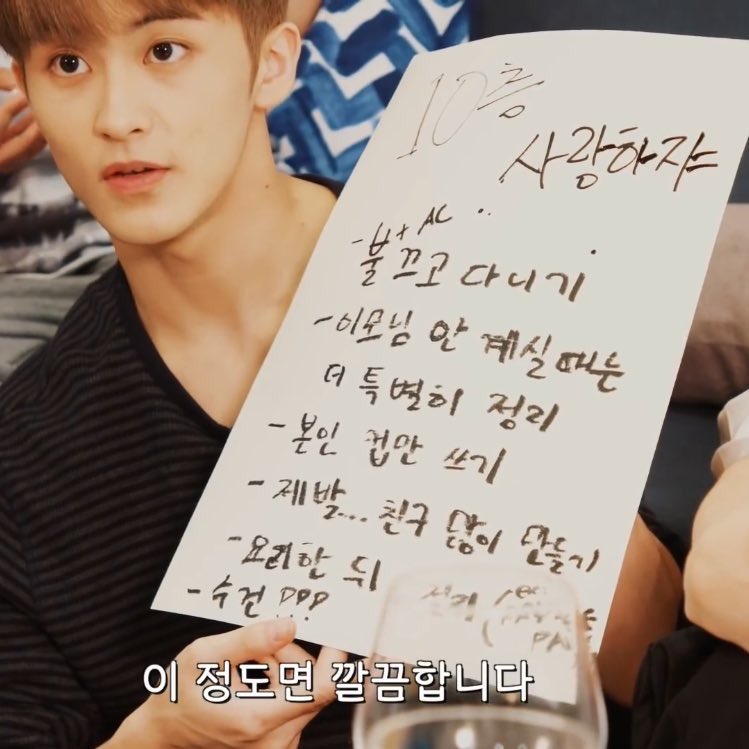 10층
사랑하쟈
AC
- 불 + 끄고 다니기
- 이모님 안 계실 때는
더 특별히 정리
- 본인 컵만 쓰기
- 제발... 친구 많이 만들기
- 요리한 뒤
- 수건 ???
이 정도면 깔끔합니다